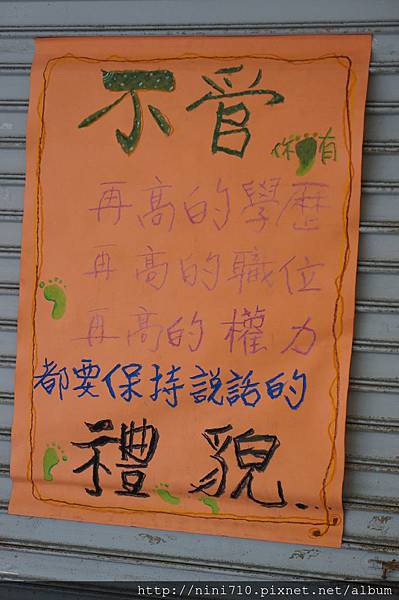 不管你有
再高的學歷
再高的職位
再高的權力
都要保持說話的
禮貌...
http://nini710.pixnet.net/album